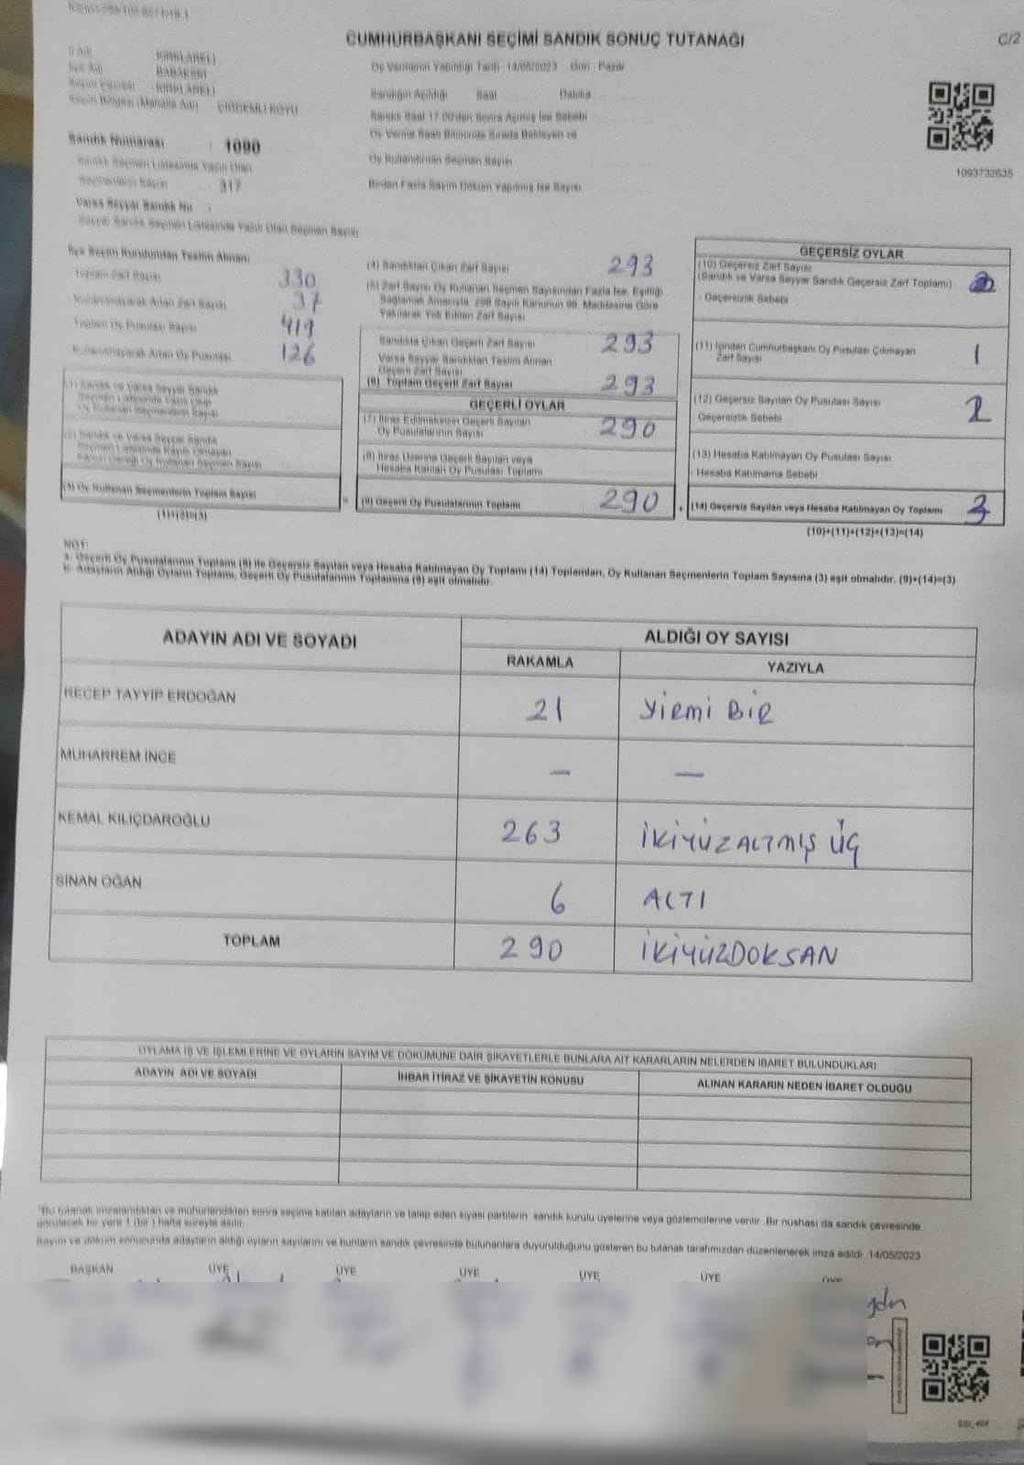 CUMHURBAŞKANI SEÇİMİ SANDIK SONUÇ TUTANAĞI
C/2
İl Adı KIRKLARELİ
İlçe Adı BABAESKİ
KIRKLARELİ
(Mahalle Adı) ÇİĞDEMLİ KÖYÜ
Oy Vermenin Yapıldığı Tarih 14/05/2023 Gün Pazar
Sandığın Açıldığı Saat Dakika
Sandık Saat 17.00'den Sonra Açılmış İse Sebebi
Oy Verme Saati Bitiminde Sırada Bekleyen ve
Oy Kullandırılan Seçmen Sayısı
Birden Fazla Sayım Döküm Yapılmış İse Sayısı
1093732635
Sandık Numarası : 1090
Sandık Seçmen Listesinde Yazılı Olan
Seçmenlerin Sayısı 317
Varsa Seyyar Sandık No :
Seyyar Sandık Seçmen Listesinde Yazılı Olan Seçmen Sayısı
İlçe Seçim Kurulundan Teslim Alınan
Toplam Zarf Sayısı 330
Kullanılmayarak Artan Zarf Sayısı 37
Toplam Oy Pusulası Sayısı 419
Kullanılmayarak Artan Oy Pusulası 126
(1) Sandık ve Varsa Seyyar Sandık
Seçmen Listesinde Yazılı Olup
Oy Kullanan Seçmenlerin Sayısı
(3) Oy Kullanan Seçmenlerin Toplam Sayısı
(1)+(2)=(3)
(4) Sandıktan Çıkan Zarf Sayısı 293
(5) Zarf Sayısı Oy Kullanan Seçmen Sayısından Fazla İse, Eşitliği
Sağlamak Amacıyla, 298 Sayılı Kanunun 98. Maddesine Göre
Yakılarak Yok Edilen Zarf Sayısı
Sandıkta Çıkan Geçerli Zarf Sayısı 293
Varsa Seyyar Sandıktan Teslim Alınan
Geçerli Zarf Sayısı
(6) Toplam Geçerli Zarf Sayısı 293
GEÇERLİ OYLAR
(7) İtiraz Edilmeksizin Geçerli Sayılan
Oy Pusulalarının Sayısı 290
(8) İtiraz Üzerine Geçerli Sayılan veya
Hesaba Katılan Oy Pusulası Toplamı
(9) Geçerli Oy Pusulalarının Toplamı 290
GEÇERSİZ OYLAR
(10) Geçersiz Zarf Sayısı
(Sandık ve Varsa Seyyar Sandık Geçersiz Zarf Toplamı)
Geçersizlik Sebebi
(11) İçinden Cumhurbaşkanı Oy Pusulası Çıkmayan
Zarf Sayısı 1
(12) Geçersiz Sayılan Oy Pusulası Sayısı 2
Geçersizlik Sebebi
(13) Hesaba Katılmayan Oy Pusulası Sayısı
Hesaba Katılmama Sebebi
(14) Geçersiz Sayılan veya Hesaba Katılmayan Oy Toplamı 3
(10)+(11)+(12)+(13)=(14)
NOT:
a. Geçerli Oy Pusulalarının Toplamı (9) ile Geçersiz Sayılan veya Hesaba Katılmayan Oy Toplamı (14) Toplamları, Oy Kullanan Seçmenlerin Toplam Sayısına (3) eşit olmalıdır. (9)+(14)=(3)
b. Adayların Aldığı Oyların Toplamı, Geçerli Oy Pusulalarının Toplamına (9) eşit olmalıdır.
ADAYIN ADI VE SOYADI ALDIĞI OY SAYISI
RAKAMLA YAZIYLA
RECEP TAYYİP ERDOĞAN 21 YİRMİ BİR
MUHARREM İNCE — —
KEMAL KILIÇDAROĞLU 263 İKİYÜZALTMIŞ ÜÇ
SİNAN OĞAN 6 ALTI
TOPLAM 290 İKİYÜZDOKSAN
OYLAMA İŞ VE İŞLEMLERİNE VE OYLARIN SAYIM VE DÖKÜMÜNE DAİR ŞİKAYETLERLE BUNLARA AİT KARARLARIN NELERDEN İBARET BULUNDUKLARI
ADAYIN ADI VE SOYADI İHBAR İTİRAZ VE ŞİKAYETİN KONUSU ALINAN KARARIN NEDEN İBARET OLDUĞU
*Bu tutanak imzalandıktan ve mühürlendikten sonra seçime katılan adayların ve talep eden siyasi partilerin sandık kurulu üyelerine veya gözlemcilerine verilir. Bir nüshası da sandık çevresinde
görülecek bir yere 1 (bir) hafta süreyle asılır.
Sayım ve döküm sonucunda adayların aldığı oyların sayılarını ve bunların sandık çevresinde bulunanlara duyurulduğunu gösteren bu tutanak tarafımızdan düzenlenerek imza edildi. 14/05/2023
BAŞKAN ÜYE ÜYE ÜYE ÜYE ÜYE ÜYE